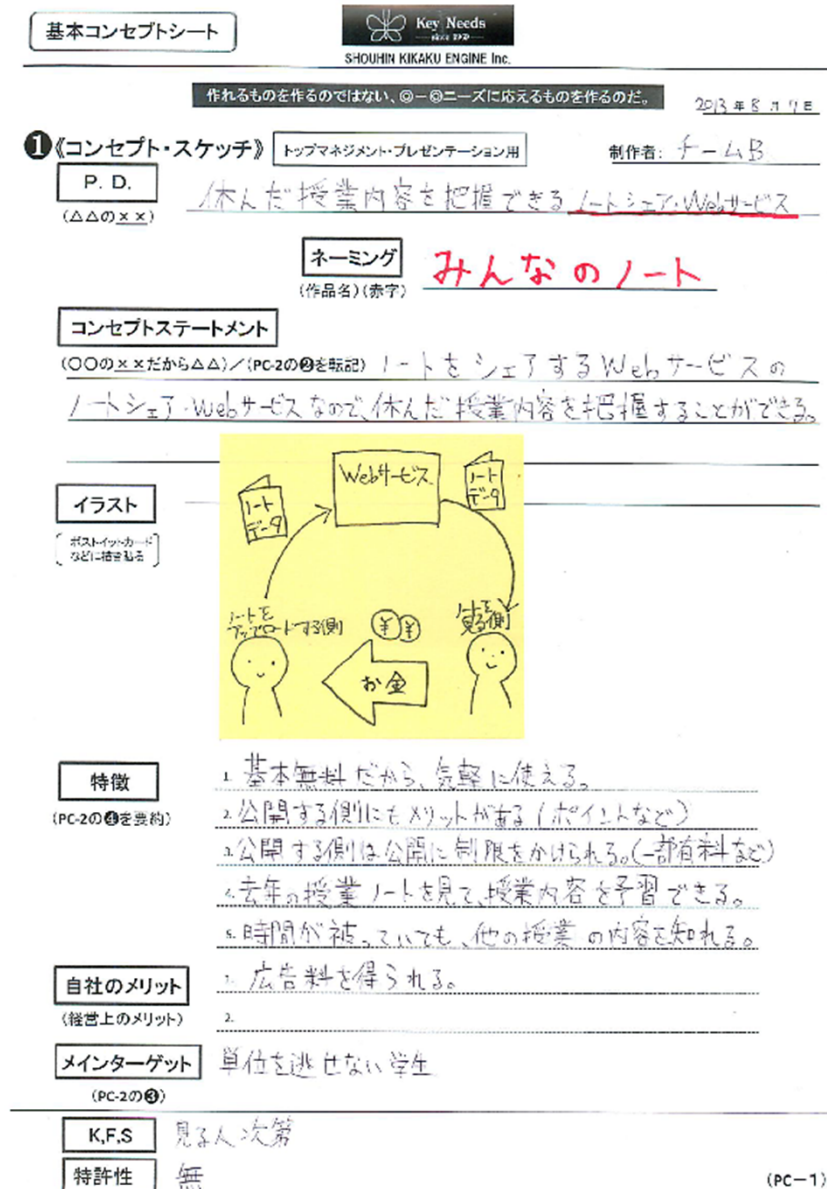 基本コンセプトシート
Key Needs
since 1969
SHOUHIN KIKAKU ENGINE Inc.
作れるものを作るのではない、◎-◎ニーズに応えるものを作るのだ。
2013年8月7日
❶《コンセプト・スケッチ》 トップマネジメント・プレゼンテーション用 制作者: チームB
P. D.
(△△の××) 休んだ授業内容を把握できるノートシェア・Webサービス
ネーミング
(作品名)(赤字) みんなのノート
コンセプトステートメント
(○○の××だから△△)/(PC-2の❷を転記) ノートをシェアするWebサービスの
ノートシェア・Webサービスなので、休んだ授業内容を把握することができる。
イラスト
ポストイットカード
などに描き貼る
Webサービス
ノート
データ
ノート
データ
ノートを
アップロードする側
¥ ¥
ノートを
見る側
お金
特徴
(PC-2の❹を要約)
1. 基本無料だから、気軽に使える。
2. 公開する側にもメリットがある(ポイントなど)
3. 公開する側は公開に制限をかけられる。(一部有料など)
4. 去年の授業ノートを見て、授業内容を予習できる。
5. 時間が被っていても、他の授業の内容を知れる。
自社のメリット
(経営上のメリット)
1. 広告料を得られる。
2.
メインターゲット
(PC-2の❸)
単位を逃せない学生
K,F,S 見る人次第
特許性 無
(PC-1)